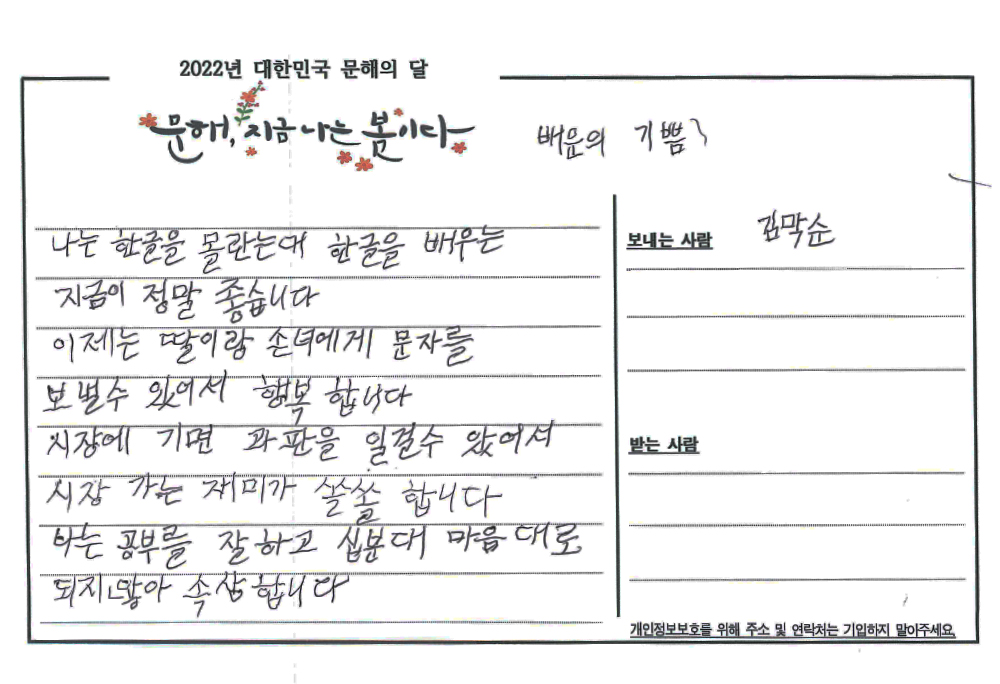 2022년 대한민국 문해의 달
문해, 지금 나는 봄이다
배움의 기쁨
나는 한글을 몰란는대 한글을 배우는
지금이 정말 좋습니다
이제는 딸이랑 손녀에게 문자를
보낼수 있어서 행복 합니다
시장에 기면 과판을 일걸수 았어서
시장 가는 재미가 쏠쏠 합니다
나는 공부를 잘하고 십분대 마음대로
되지않아 속상합니다
보내는 사람 김막순
받는 사람
개인정보보호를 위해 주소 및 연락처는 기입하지 말아주세요.